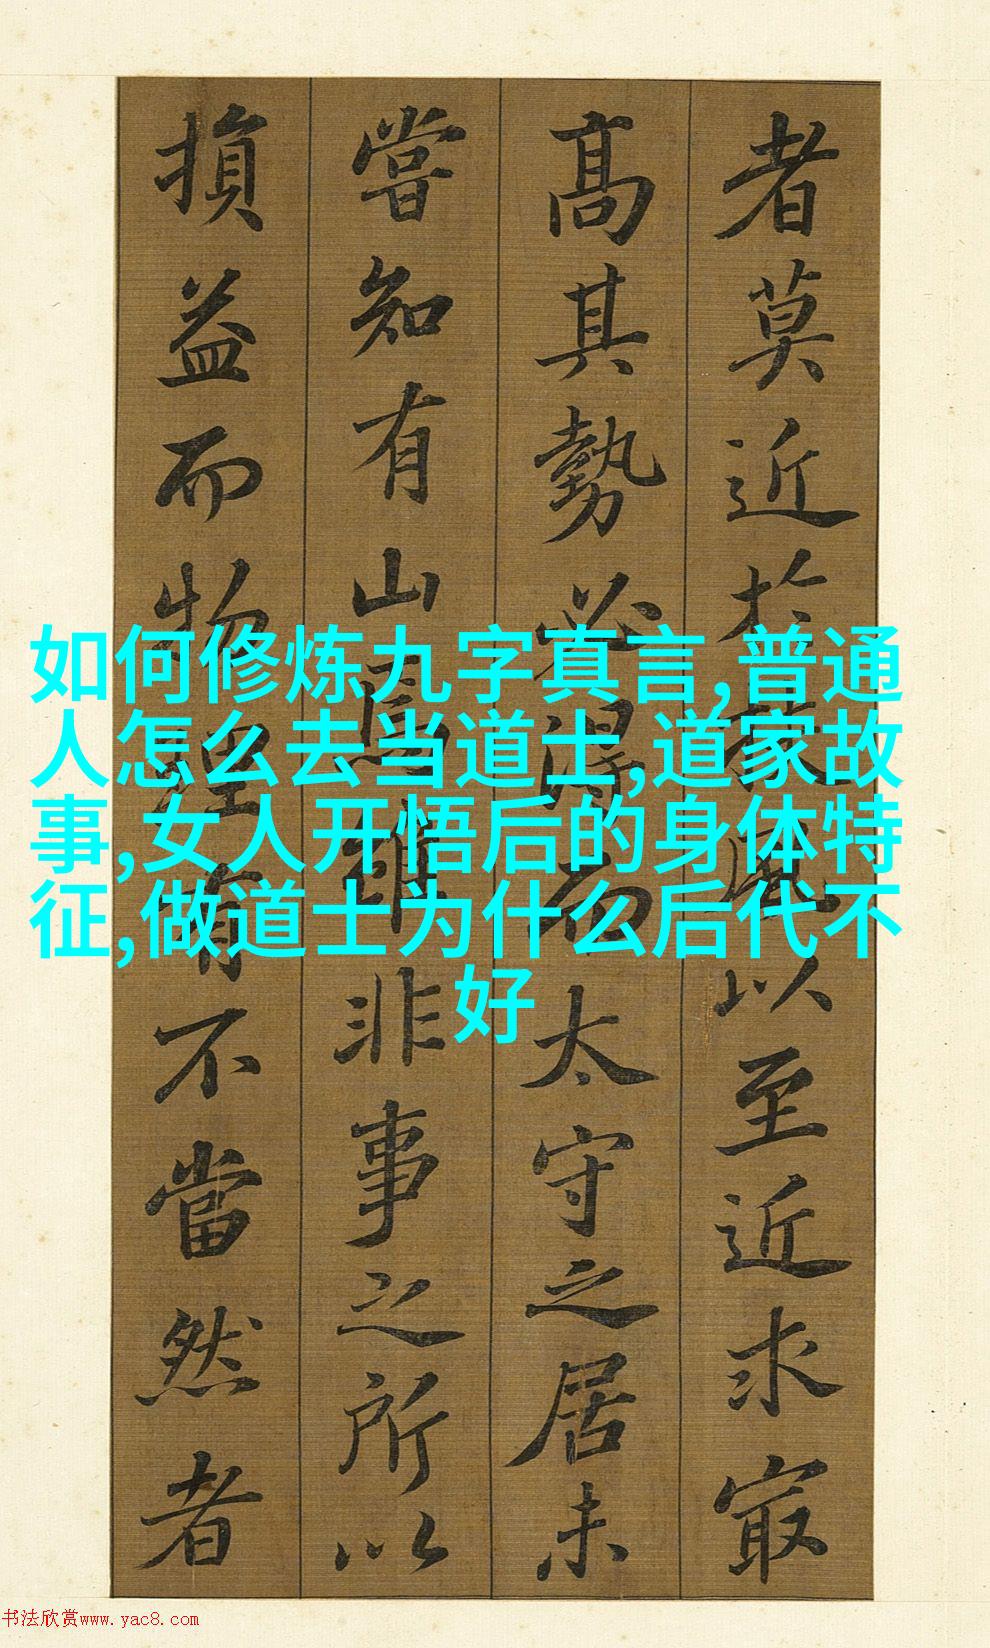 者莫近於扶風以至近求最
高其勢必得而太守之居未
嘗知有山焉雖非事之所以
損益而物理有不當然者
如何修炼九字真言,普通
人怎么去当道士,道家故
事,女人开悟后的身体特
征,做道士为什么后代不
好
书法欣赏www.yac8.com